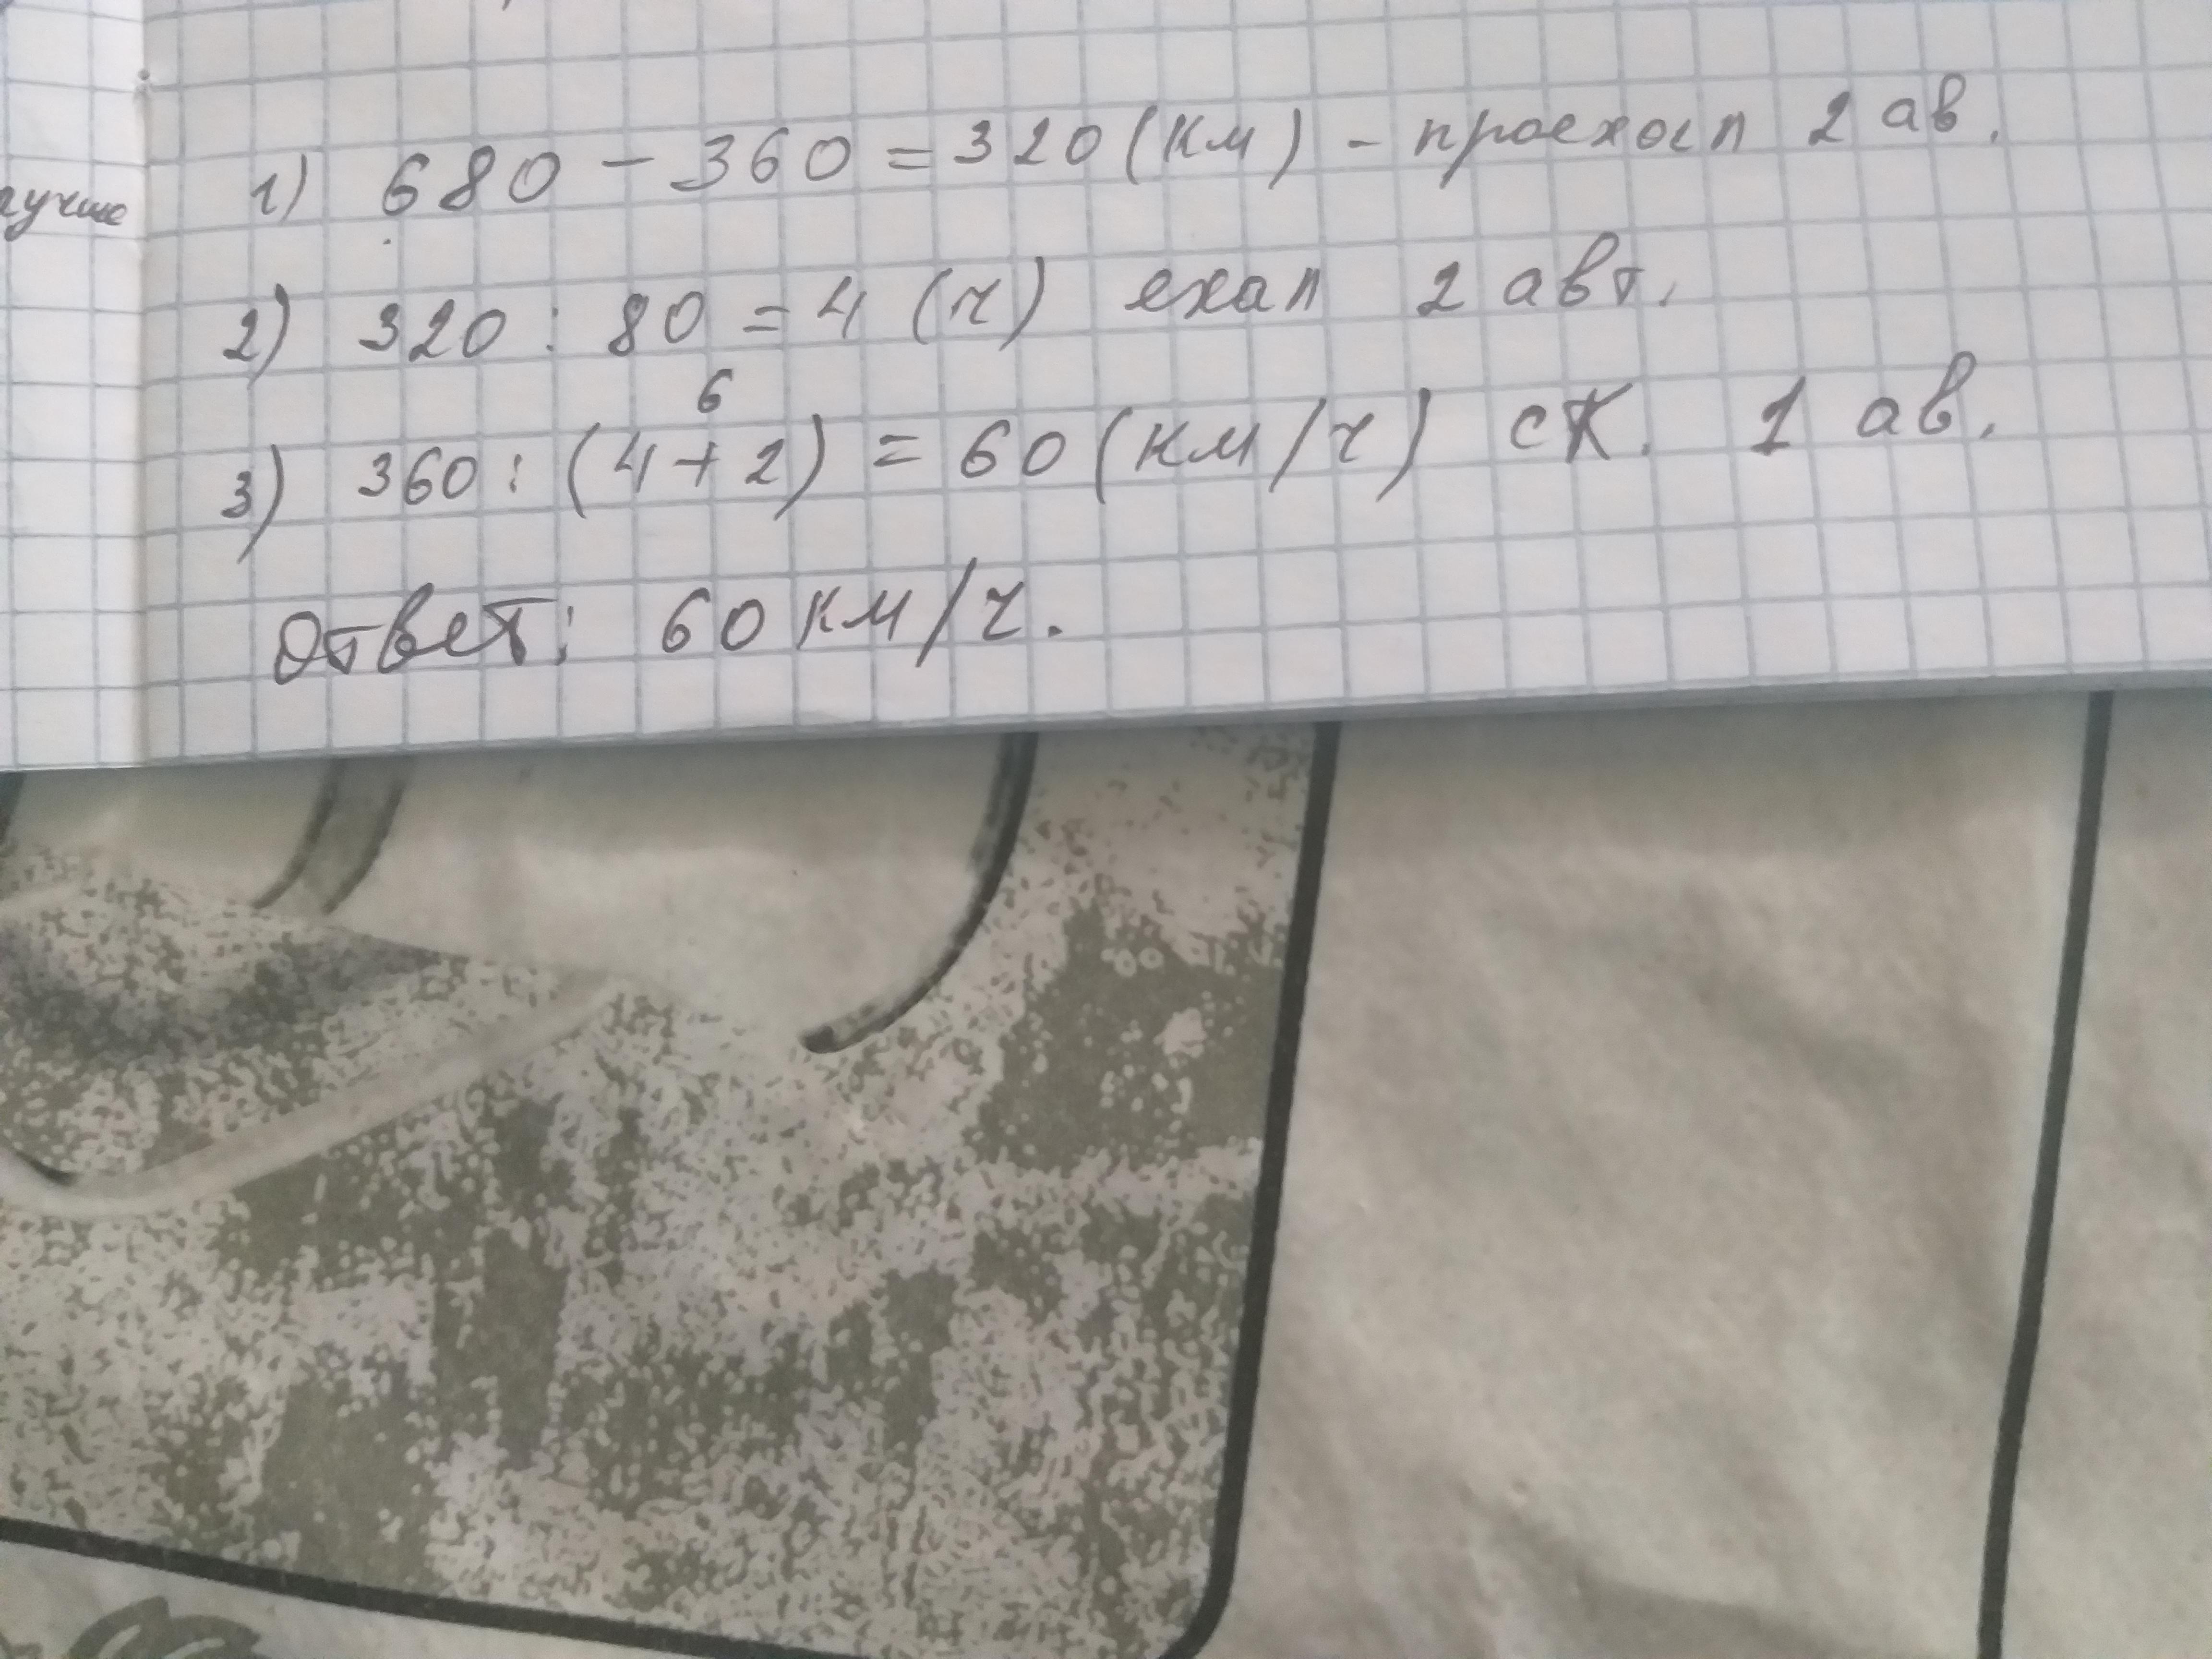 1) 680 - 360 = 320 (км) - проехал 2 ав.
лучше
2) 320 : 80 = 4 (ч) ехал 2 авт.
6
3) 360 : (4+2) = 60 (км/ч) ск. 1 ав.
Ответ: 60 км/ч.